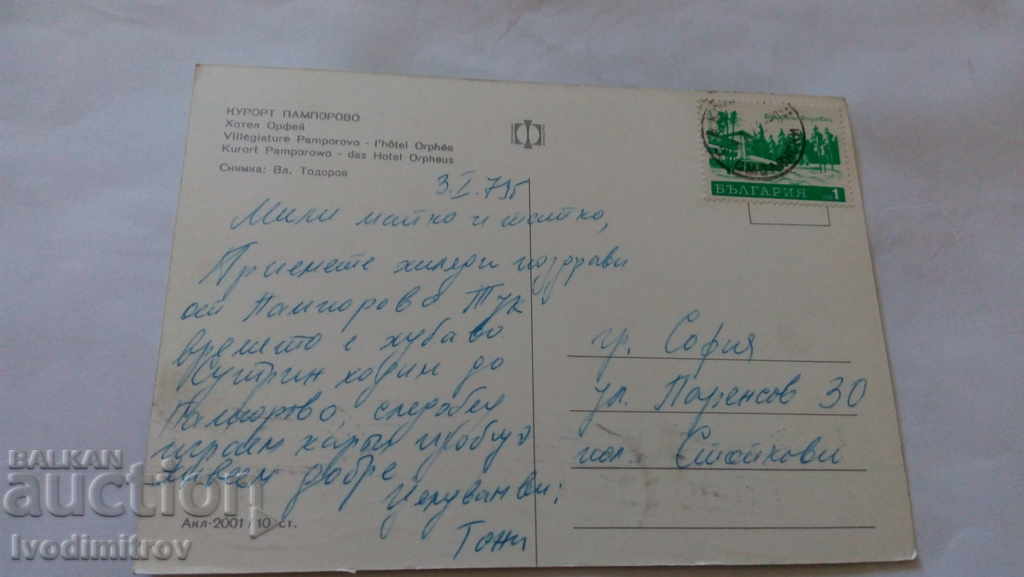 КУРОРТ ПАМПОРОВО
Хотел Орфей
Villegiature Pamporovo - l'hôtel Orphée
Kurort Pamporowo - das Hotel Orpheus
Снимка: Вл. Тодоров
3.I.79г
Мили майко и татко,
Приемете хиляди поздрави
от Пампорово Тук
времето е хубаво
Сутрин ходим до
Пампорово, следобед
играем карти и
живеем добре
Целувам ви:
Тони
Акл-2001 /10 ст.
БЪЛГАРИЯ 1
гр. София
ул. Паренсов 30
Стойкови
BALKAN
auction
Ivodimitrov